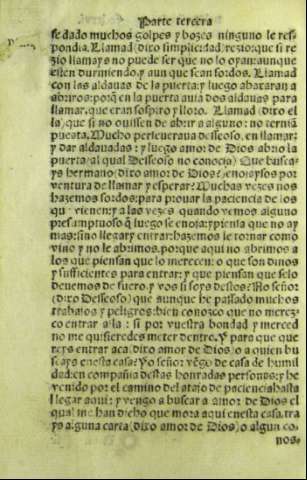 Parte tercera
se dado muchos golpes y bozes ninguno le res-
pondia. Llamad (dixo simplicidad) rezio: que si re
zio llamays no puede ser que no lo oyan: aunque
esten durmiendo, y aun que sean sordos. Llamad
con las aldauas de la puerta: y luego abaxaran a
abriros: porq̃ en la puerta auia dos aldauas para
llamar, que eran sospiro y lloro. Llamad (dixo el
la) que si no ouissen de abrir a alguno: no ternia
puerta. Mucho perseueraua desseoso, en llamar:
y dar aldauadas: y luego amor de Dios abrio la
puerta (al qual Desseoso no conocia) Que busca-
ys hermano (dixo amor de Dios) enojaysos por
ventura de llamar y esperar? Muchas vezes nos
hazemos sordos: para prouar la paciencia de los
qu vienen: y a las vezes quando vemos alguno
presumptuoso q̃ luego se enoja: y piensa que no ay
mas: sino llegar y entrar: hazemosle tornar como
vino y no le abrimos, porque aqui no abrimos a
los que piensan que lo merecen: o que son dinos
y sufficientes para entrar: y que piensan que selo
deuemos de fuero. y vos si soys destos? No señor
(dixo Desseoso) que aunque he passado muchos
trabajos y peligros: bien conozco que no merez-
co entrar a la: si por vuestra bondad y merced
no me quisieredes meter dentro. Y para que que
reys entrar aca (dixo amor de Dios) o a quien bu
scays enesta casa? Yo señor vẽgo de casa de humil
dad: en compañia destas honradas personas: y he
venido por el camino del atajo de paciencia hasta
llegar aqui: y vengo a buscar a amor de Dios el
qual me han dicho que mora aqui enesta casa. tra
ys alguna carta (dixo amor de Dios) o algun co-
nos-